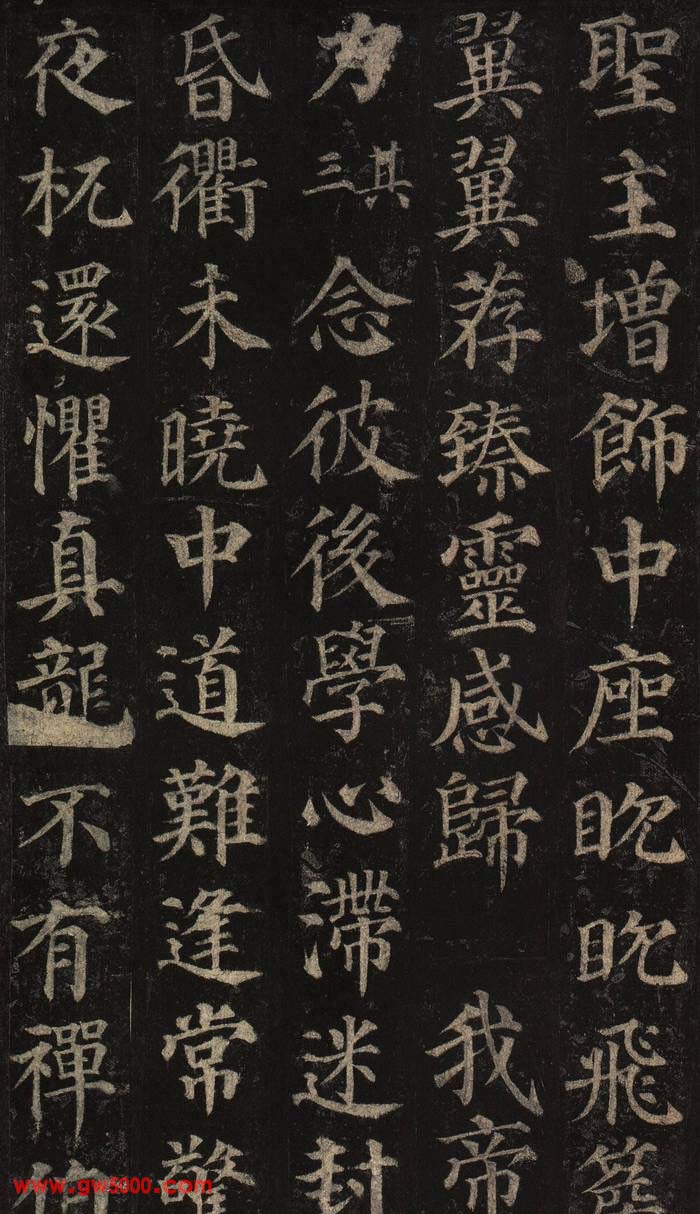 聖主增飾中座眈眈飛簷
翼翼荐臻靈感歸 我帝
力其三念彼後學心滯迷封
昏衢未曉中道難逢常驚
夜杌還懼真龍不有禪伯
www.gw5000.com